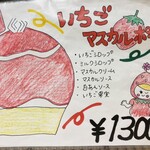 いちご
マスカルポ
・いちごシロップ
・ミルクシロップ
・マスカルクリーム
・マスカルソース
・白あんソース
・いちご果実
¥1300